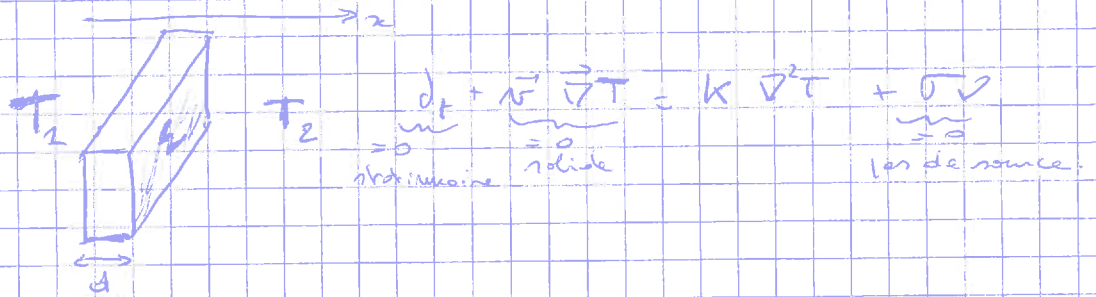 x
T₁ T₂ ∂t + v⃗ ∇⃗T = K ∇²T + σν
=0 =0 =0
stationnaire solide pas de source.
d